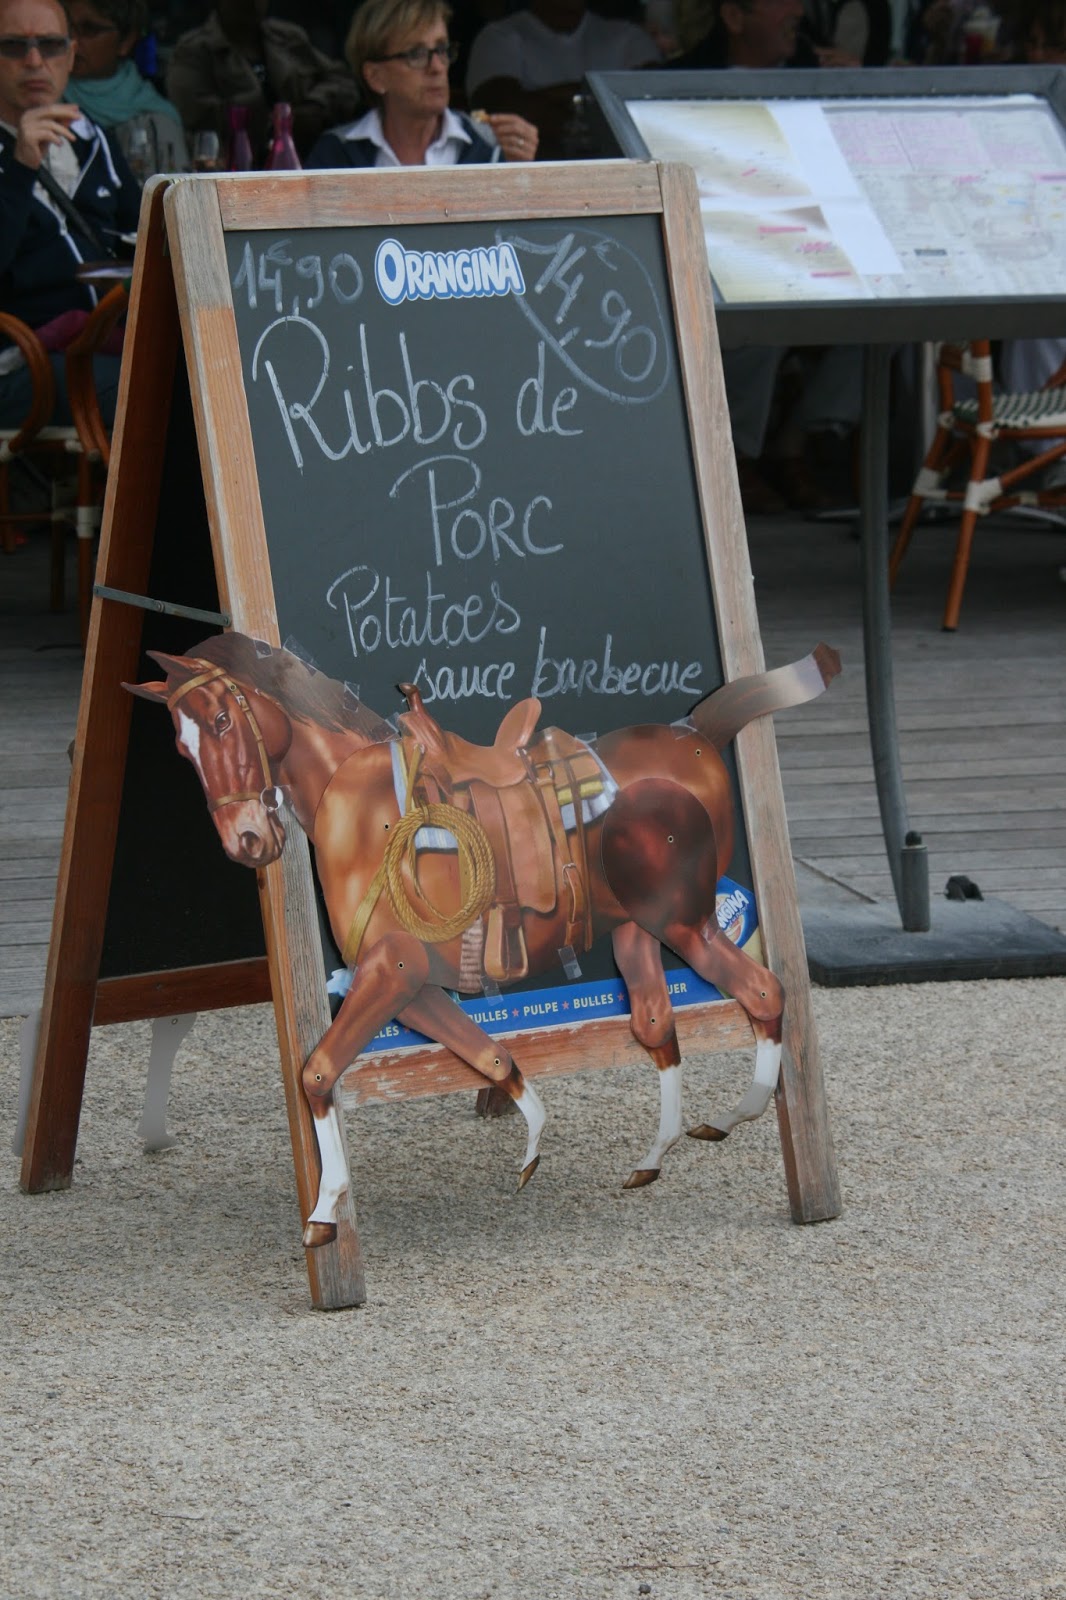 14€,90 ORANGINA 14€,90
Ribbs de
PORC
Potatoes
sauce barbecue
NGINA
PULPE ★ BULLES ★